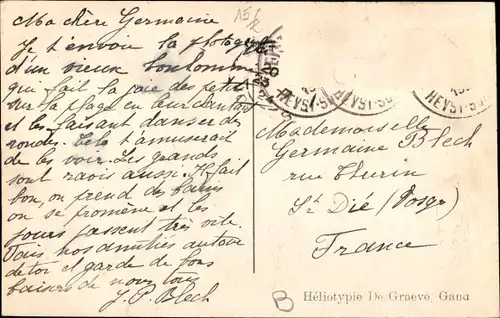 Ma chère Germaine
Je t'envoie la photogr.
d'un vieux bonhomme
qui fait la joie des petits
sur la plage en leur
et les faisant danser des
rondes. Cela t'amuserait
de les voir. Les grands
sont ravis aussi. Il fait
bon, on prend des bains
on se promène et les
jours passent très vite.
Fais nos amitiés autour
de toi et garde de bons
baisers de nous tous
J. P. Blech
HEYST-S
HEYST-S
Mademoiselle
Germaine Blech
rue Thurin
St Dié (Vosges)
France
B
Héliotypie De Graeve, Gand